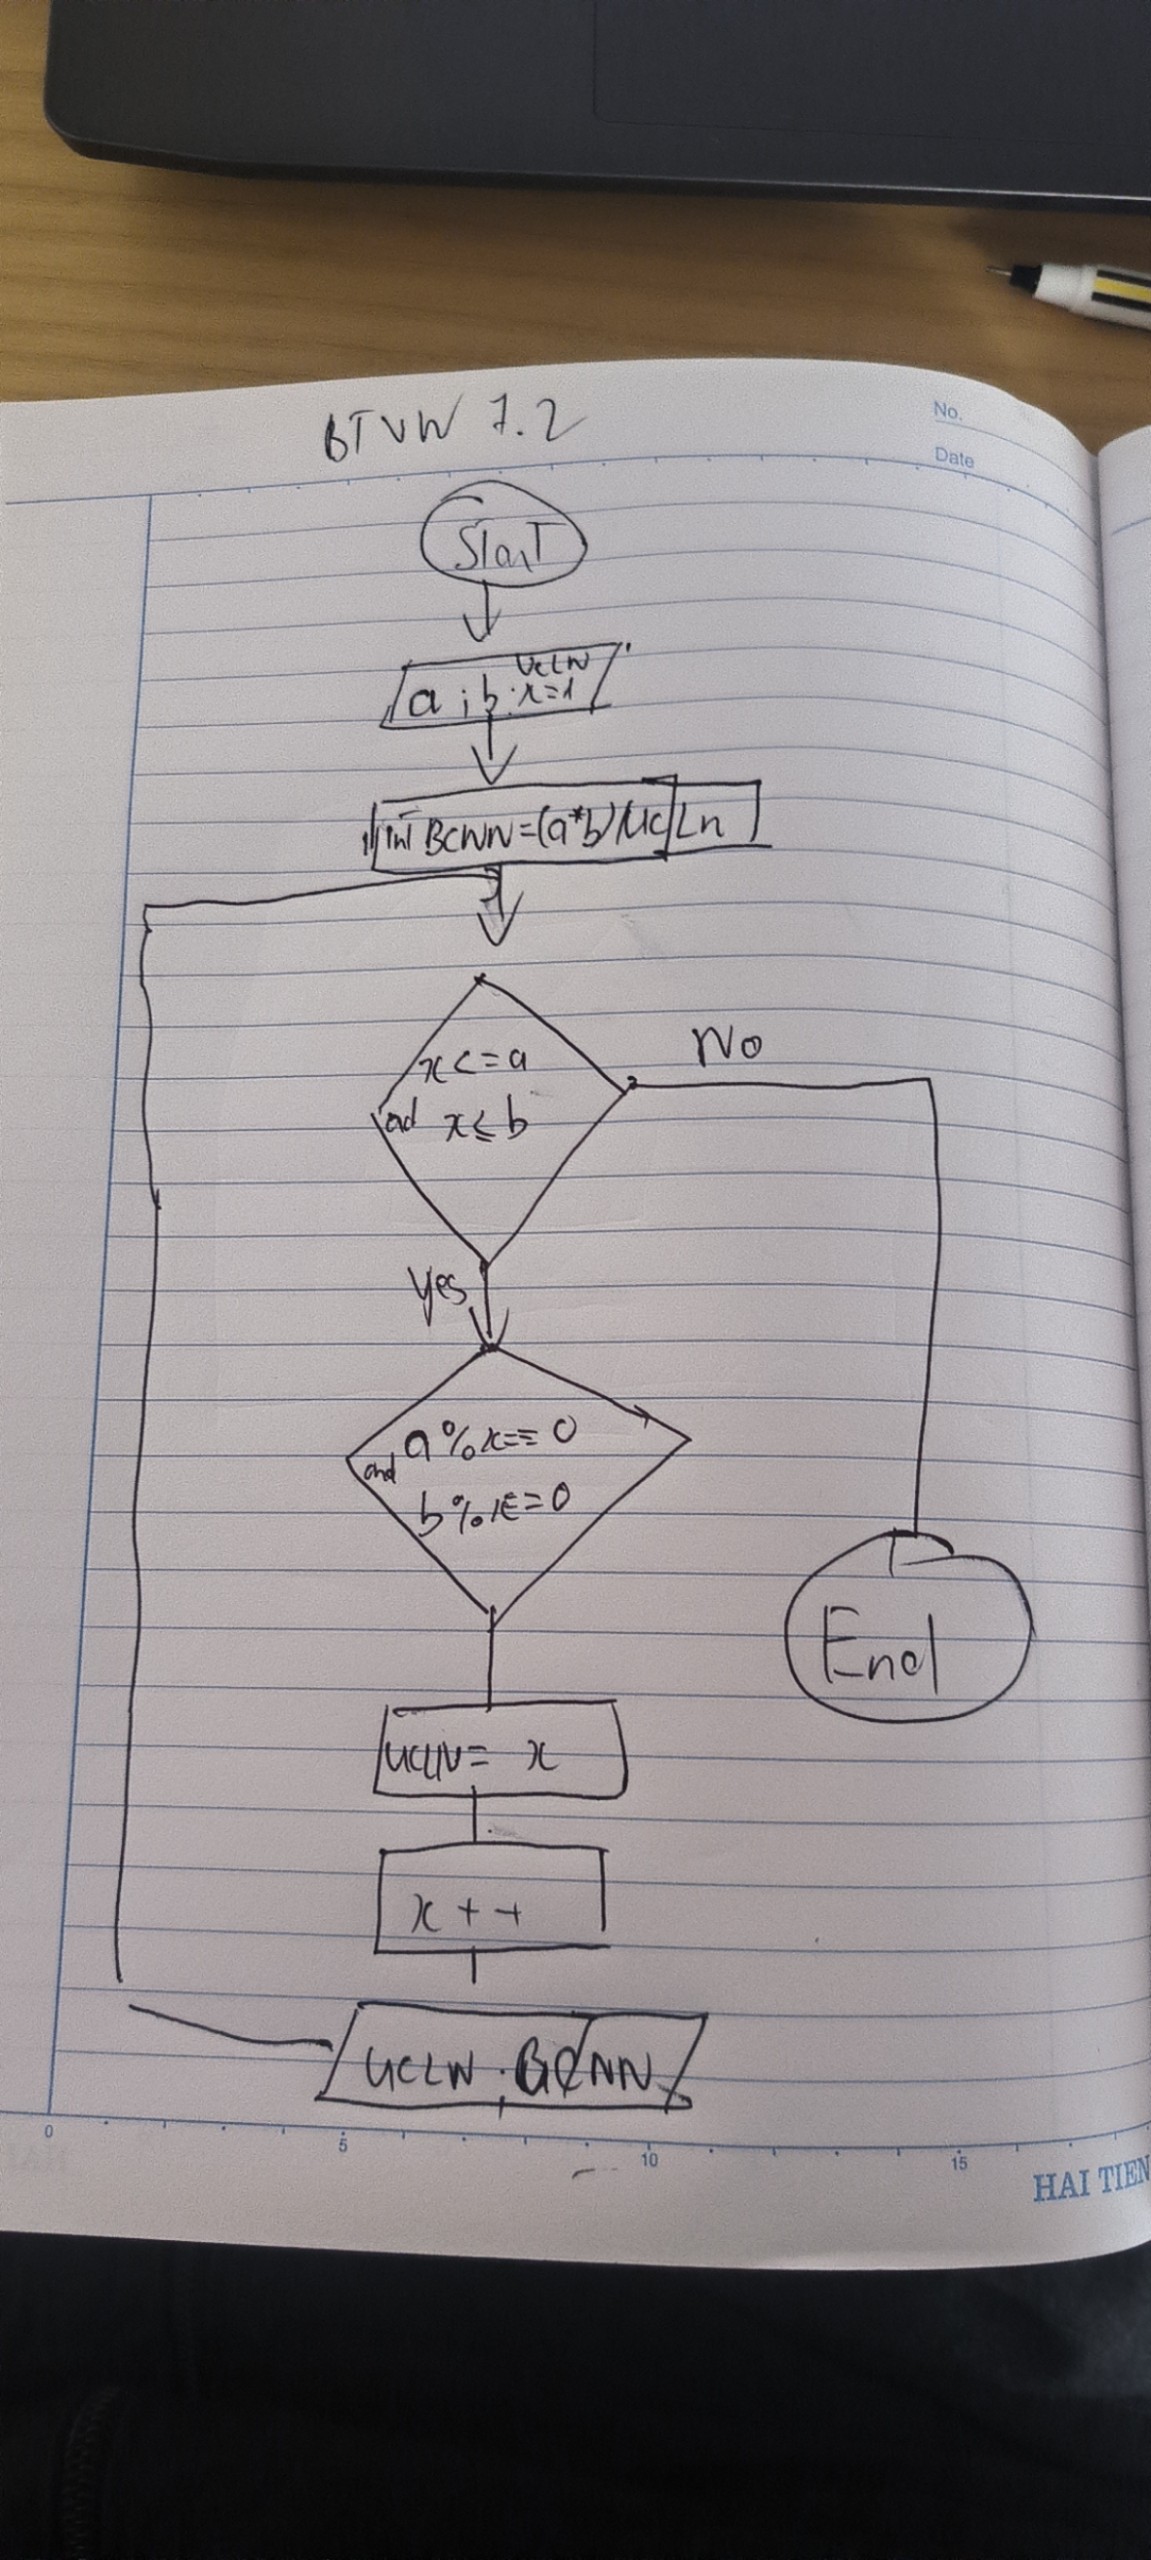 BTVN 7.2
No.
Date
Start
UCLN
a ; b ; x=1
int BCNN=(a*b)/UCLn
x<=a
and x≤b
No
Yes
a%x==0
and
b%x==0
End
UCLN= x
x++
UCLN . BCNN
0 5 10 15
HAI TIEN